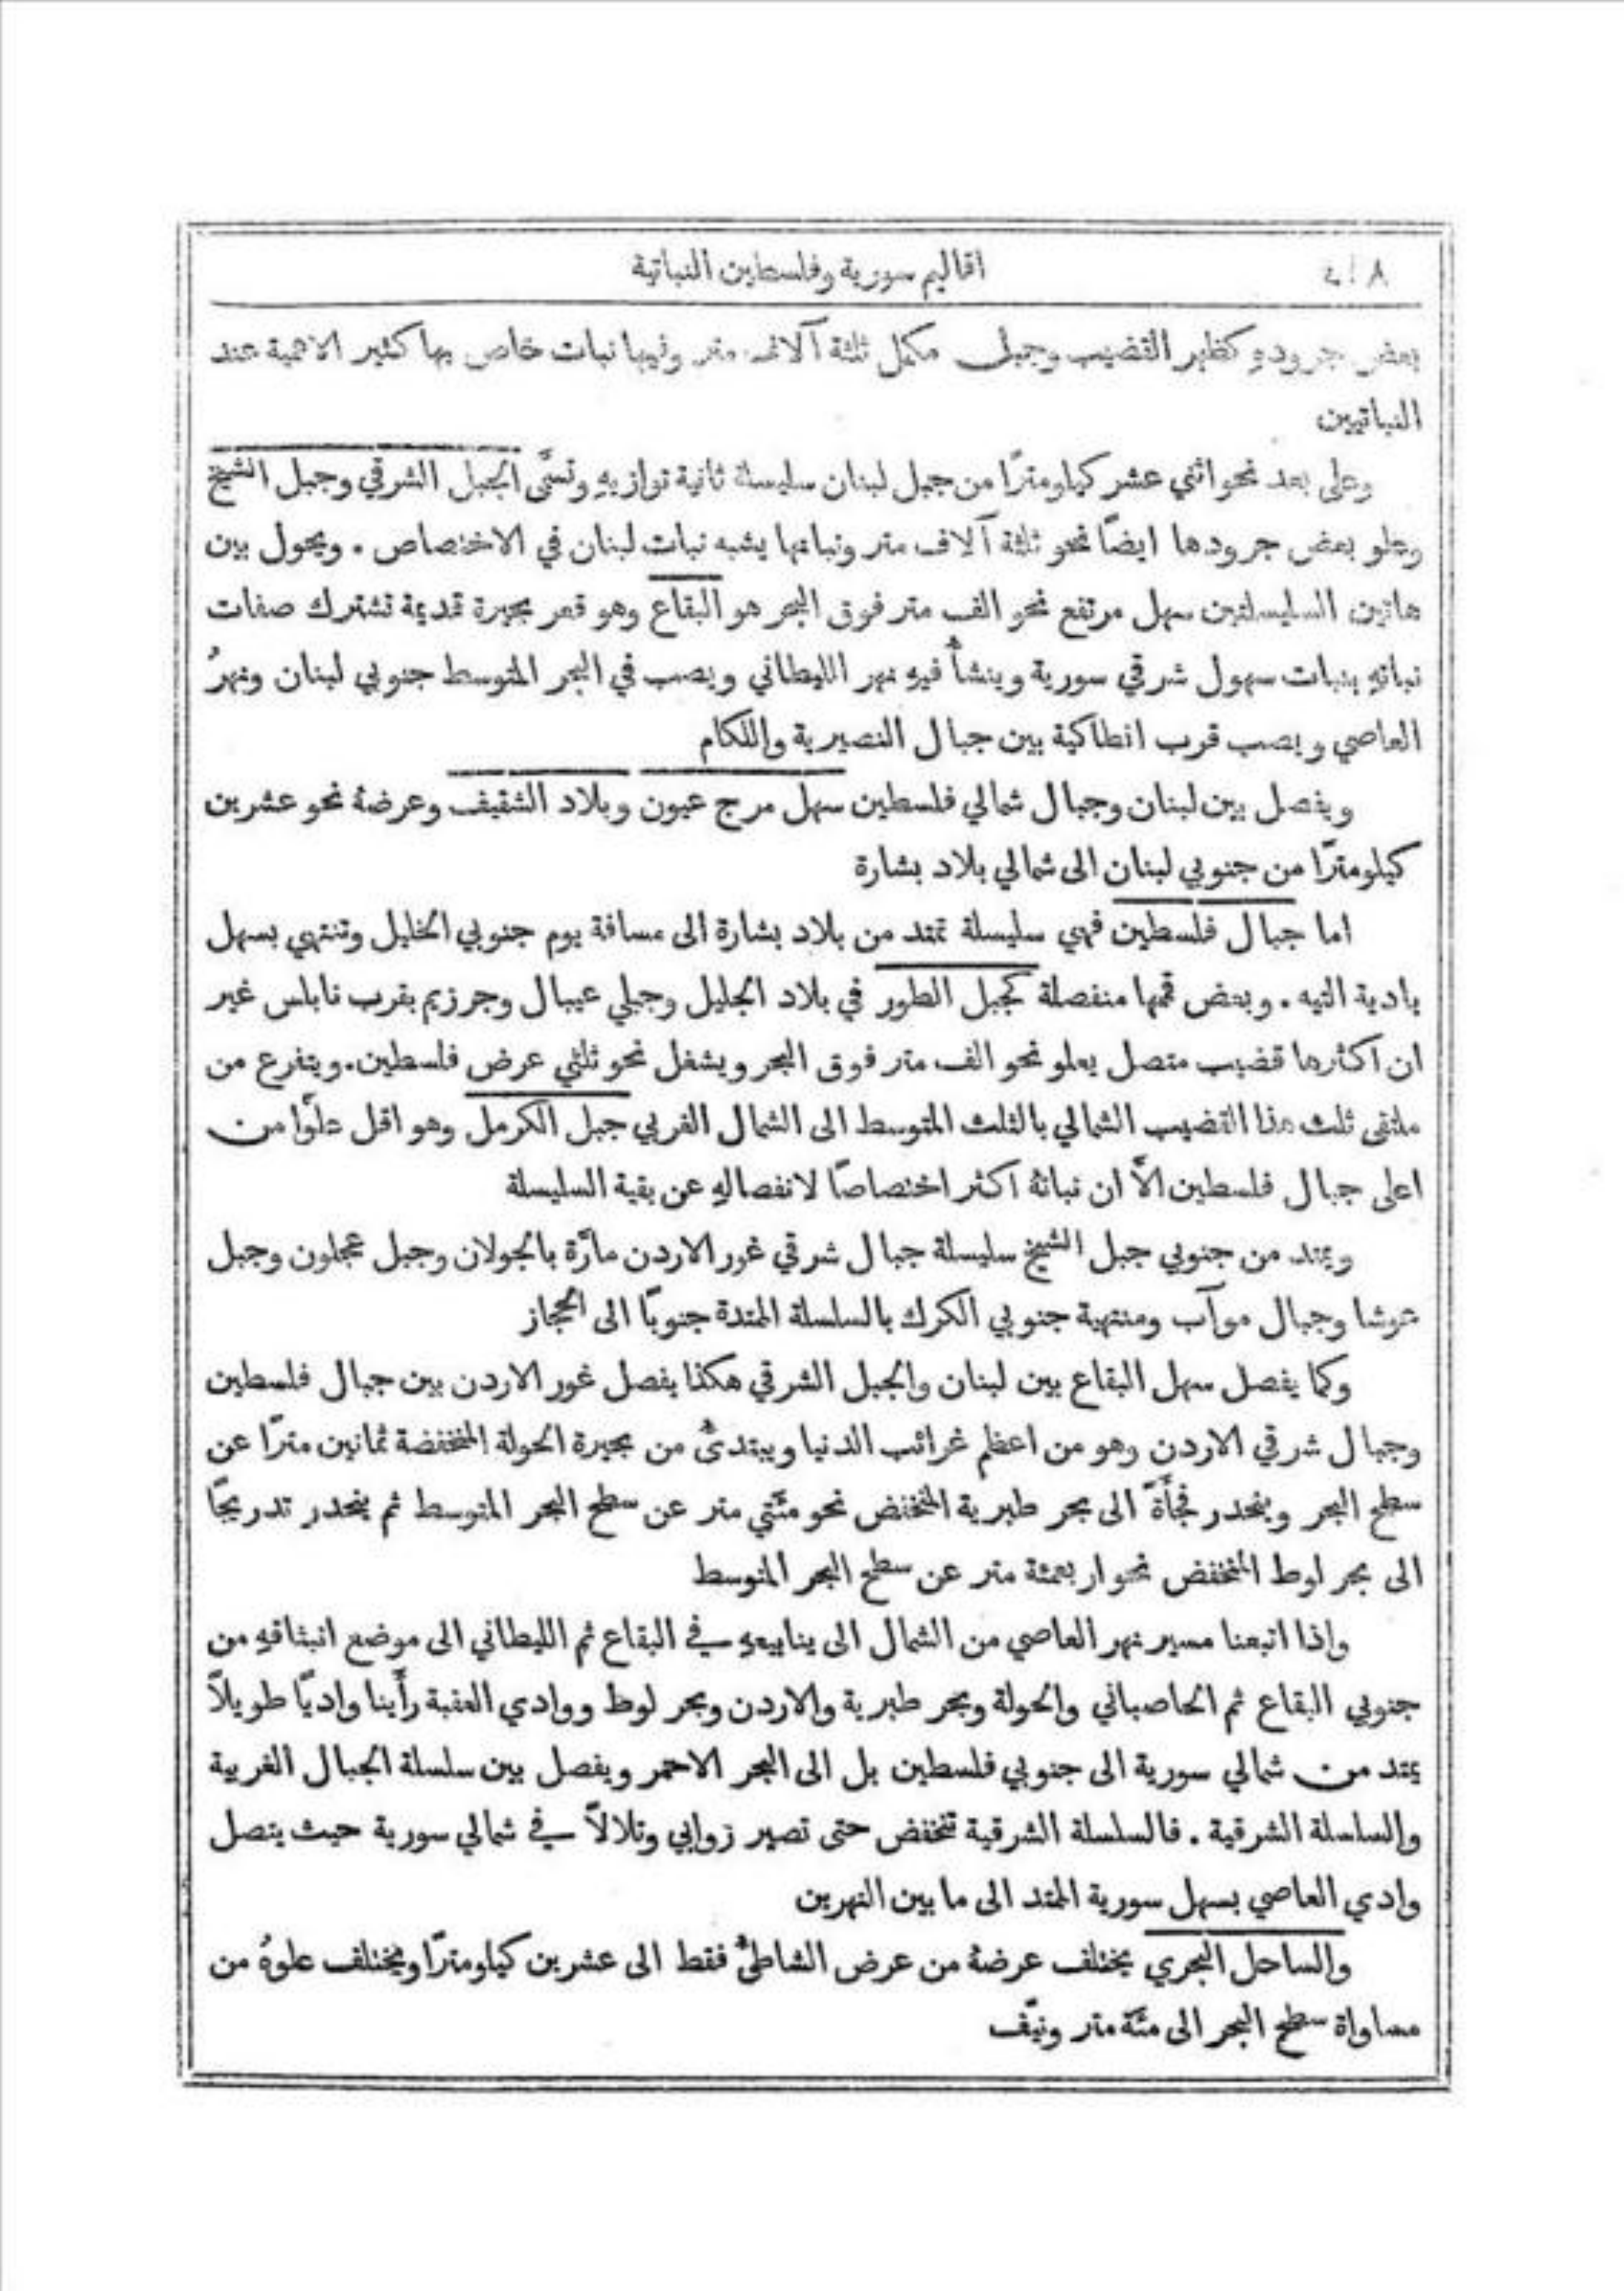 اقاليم سورية وفلسطين النباتية
بعض جرودهِ كظهر القضيب وجبل مكمل ثلثة آلاف متر وفيها نبات خاص بها كثير الاهمية عند
النباتيين
وعلى بعد نحو اثني عشر كيلومترًا من جبل لبنان سليسلة ثانية توازيهِ وتسمَّى الجبل الشرقي وجبل الشيخ
وعلو بعض جرودها ايضًا نحو ثلثة آلاف متر ونباتها يشبه نبات لبنان في الاختصاص . ويحول بين
هاتين السليسلتين سهل مرتفع نحو الف متر فوق البحر هو البقاع وهو قعر بحيرة قديمة تشترك صفات
نباتهِ بنبات سهول شرقي سورية وينشأُ فيهِ نهر الليطاني ويصب في البحر المتوسط جنوبي لبنان ونهرُ
العاصي ويصب قرب انطاكية بين جبال النصيرية واللكام
ويفصل بين لبنان وجبال شمالي فلسطين سهل مرج عيون وبلاد الشقيف وعرضهُ نحو عشرين
كيلومترًا من جنوبي لبنان الى شمالي بلاد بشارة
اما جبال فلسطين فهي سليسلة تمتد من بلاد بشارة الى مسافة يوم جنوبي الخليل وتنتهي بسهل
بادية التيه . وبعض قممها منفصلة كجبل الطور في بلاد الجليل وجبلي عيبال وجرزيم بقرب نابلس غير
ان اكثرها قضيب متصل يعلو نحو الف متر فوق البحر ويشغل نحو ثلثي عرض فلسطين. ويتفرع من
ملتقى ثلث هذا القضيب الشمالي بالثلث المتوسط الى الشمال الغربي جبل الكرمل وهو اقل علوًّا من
اعلى جبال فلسطين الاَّ ان نباتهُ اكثر اختصاصًا لانفصالهِ عن بقية السليسلة
ويمتد من جنوبي جبل الشيخ سليسلة جبال شرقي غور الاردن مارَّة بالجولان وجبل عجلون وجبل
عوشا وجبال موآب ومنتهية جنوبي الكرك بالسلسلة الممتدة جنوبًا الى الحجاز
وكما يفصل سهل البقاع بين لبنان والجبل الشرقي هكذا يفصل غور الاردن بين جبال فلسطين
وجبال شرقي الاردن وهو من اعظم غرائب الدنيا ويبتدئُ من بحيرة الحولة المنخفضة ثمانين مترًا عن
سطح البحر وينحدر فجأَةً الى بحر طبرية المنخفض نحو مئتي متر عن سطح البحر المتوسط ثم ينحدر تدريجًا
الى بحر لوط المنخفض نحو اربعمئة متر عن سطح البحر المتوسط
واذا اتبعنا مسير نهر العاصي من الشمال الى ينابيعهِ في البقاع ثم الليطاني الى موضع انبثاقهِ من
جنوبي البقاع ثم الحاصباني والحولة وبحر طبرية والاردن وبحر لوط ووادي العقبة رأَينا واديًا طويلاً
يمتد من شمالي سورية الى جنوبي فلسطين بل الى البحر الاحمر ويفصل بين سلسلة الجبال الغربية
والسلسلة الشرقية . فالسلسلة الشرقية تنخفض حتى تصير زوابي وتلالاً في شمالي سورية حيث يتصل
وادي العاصي بسهل سورية الممتد الى ما بين النهرين
والساحل البحري يختلف عرضهُ من عرض الشاطئُ فقط الى عشرين كيلومترًا ويختلف علوهُ من
مساواة سطح البحر الى مئة متر ونيّف